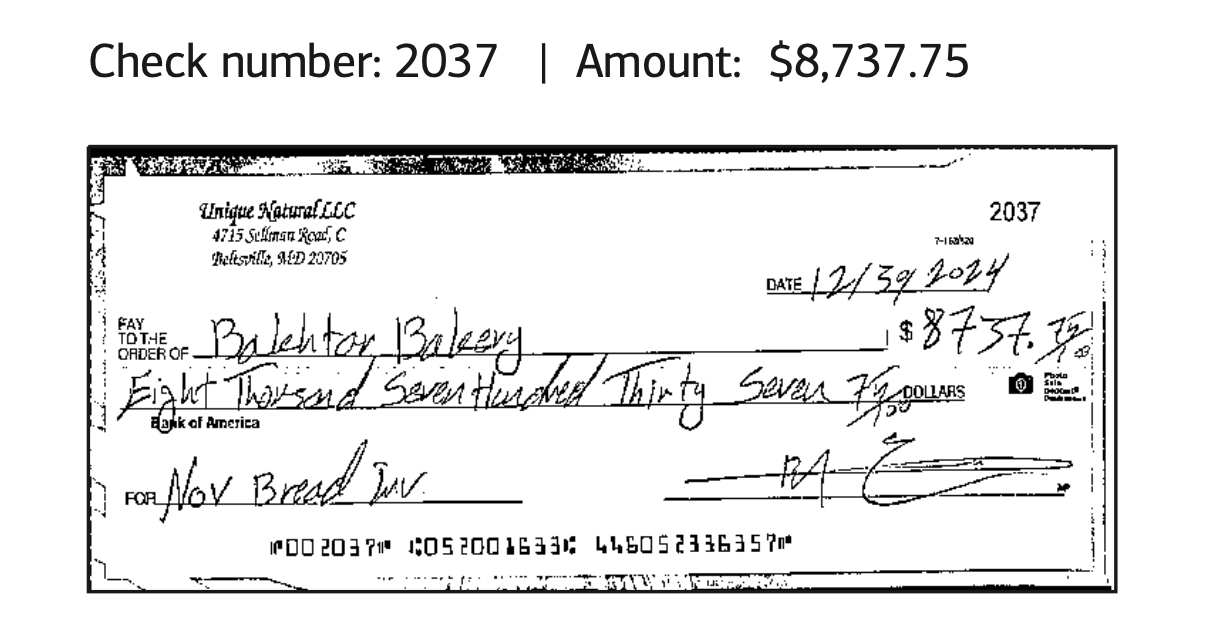 Check number: 2037 | Amount: $8,737.75
Unique Natural LLC
2037
4715 Sellman Road, C
Beltsville, MD 20705
DATE 12/39 2024
PAY TO THE ORDER OF Balehtar Bakery $8737. 75/00
Eight Thousand Seven Hundred Thirty Seven 75/100 DOLLARS
Photo
Safe
Deposit
Bank of America
FOR Nov Bread Inv.
⑈002037⑈ ⑆052001633⑆ 446052336357⑈